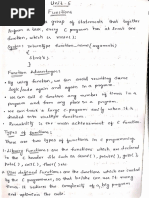 Unit - 5
Functions
group of statements that together
perform a task, Every C program has at least one
function, which is main().
Syntax: returntype function_name(arguments)
{
}
Function Advantages:
By using function, we can avoid rewriting same
logic/code again and again in a program.
we can call C function any number of times in a
program and from any place to a program.
we can track a large C program easily when it is
divided into multiple functions.
Reusability is the main achievement of C function
Types of functions:
There are two types of functions in C programming
functions: are the functions which are declared
in the C header file such as
User defined functions: are the functions which are created
by the C programmer, so that he/she can use it many
times. It reduces the complexity of a big program
and optimizes the code.